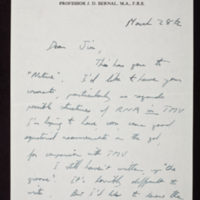 PROFESSOR J. D. BERNAL, M.A., F.R.S.
March 28th
Dear Jim,
This has gone to
"Nature". I'd like to have your
comments, particularly as regards
possible structures of RNA in TMV
I'm hoping to have some good
equatorial measurements in the gel
for comparison with TMV
I still haven't written up "the
groove" It's horribly difficult to
write. But I'd like to leave the